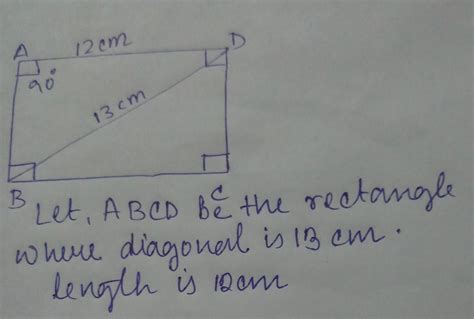 A 12cm D
90°
13 cm
B C
Let, ABCD Be the rectangle
where diagonal is 13 cm.
length is 12cm